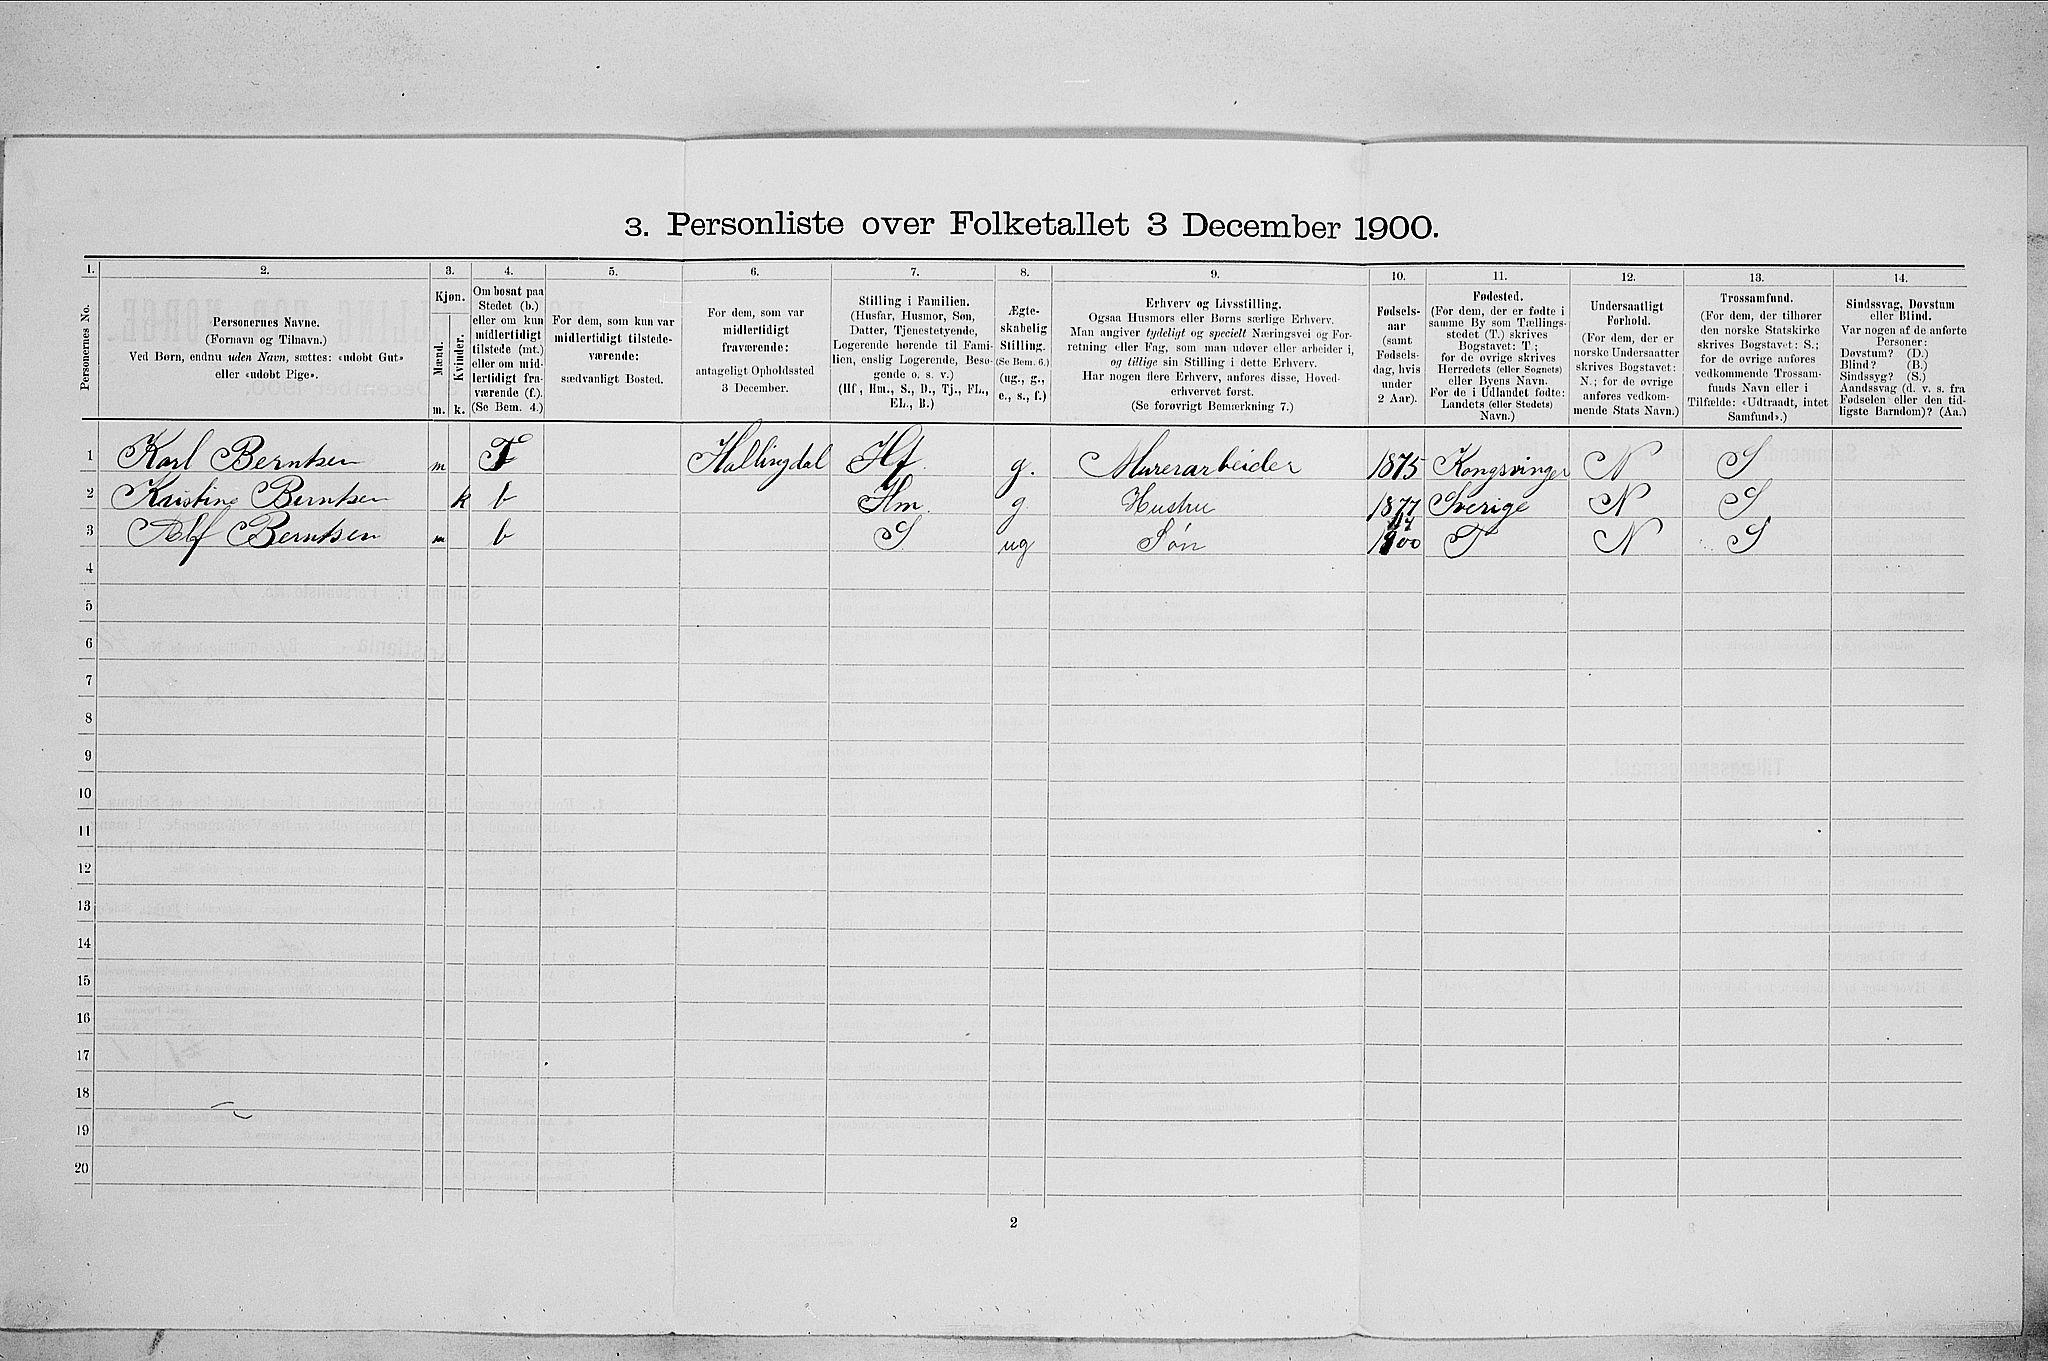 3. Personliste over Folketallet 3 December 1900.
1. 2. 3. 4. 5. 6. 7. 8. 9. 10. 11. 12. 13. 14.
Personernes No.
Personernes Navne.
(Fornavn og Tilnavn.)
Ved Børn, endnu uden Navn, sættes: «udøbt Gut»
eller «udøbt Pige».
Kjøn.
Mænd.
Kvinder.
m. k.
Om bosat paa
Stedet (b.)
eller om kun
midlertidigt
tilstede (mt.)
eller om mid-
lertidigt fra-
værende (f.).
(Se Bem. 4.)
For dem, som kun var
midlertidigt tilstede-
værende:
sædvanligt Bosted.
For dem, som var
midlertidigt
fraværende:
antageligt Opholdssted
3 December.
Stilling i Familien.
(Husfar, Husmor, Søn,
Datter, Tjenestetyende,
Logerende hørende til Fami-
lien, enslig Logerende, Besø-
gende o. s. v.)
(Hf., Hm., S., D., Tj., FL.,
EL., B.)
Ægte-
skabelig
Stilling.
(Se Bem. 6.)
(ug., g.,
e., s., f.)
Erhverv og Livsstilling.
Ogsaa Husmors eller Børns særlige Erhverv.
Man angiver tydeligt og specielt Næringsvei og For-
retning eller Fag, som man udøver eller arbeider i,
og tillige sin Stilling i dette Erhverv.
Har nogen flere Erhverv, anføres disse, Hoved-
erhvervet først.
(Se forøvrigt Bemærkning 7.)
Fødsels-
aar
(samt
Fødsels-
dag, hvis
under
2 Aar).
Fødested.
(For dem, der er fødte i
samme By som Tællings-
stedet (T.) skrives
Bogstavet: T;
for de øvrige skrives
Herredets (eller Sognets)
eller Byens Navn.
For de i Udlandet fødte:
Landets (eller Stedets)
Navn.)
Undersaatligt
Forhold.
(For dem, der er
norske Undersaatter
skrives Bogstavet:
N.; for de øvrige
anføres vedkom-
mende Stats Navn.)
Trossamfund.
(For dem, der tilhører
den norske Statskirke
skrives Bogstavet: S.;
for de øvrige anføres
vedkommende Trossam-
funds Navn eller i
Tilfælde: «Udtraadt, intet
Samfund».)
Sindssvag, Døvstum
eller Blind.
Var nogen af de anførte
Personer:
Døvstum? (D.)
Blind? (B.)
Sindssyg? (S.)
Aandssvag (d. v. s. fra
Fødselen eller den tid-
ligste Barndom)? (Aa.)
1 Karl Berntsen m F Hallingdal Hf. g. Murerarbeider 1875 Kongsvinger N S
2 Kristine Berntsen k b Hm. g Hustru 1877 Sverige N S
3 Alf Berntsen m b S ug Søn 1900 T N S
4
5
6
7
8
9
10
11
12
13
14
15
16
17
18
19
20
2